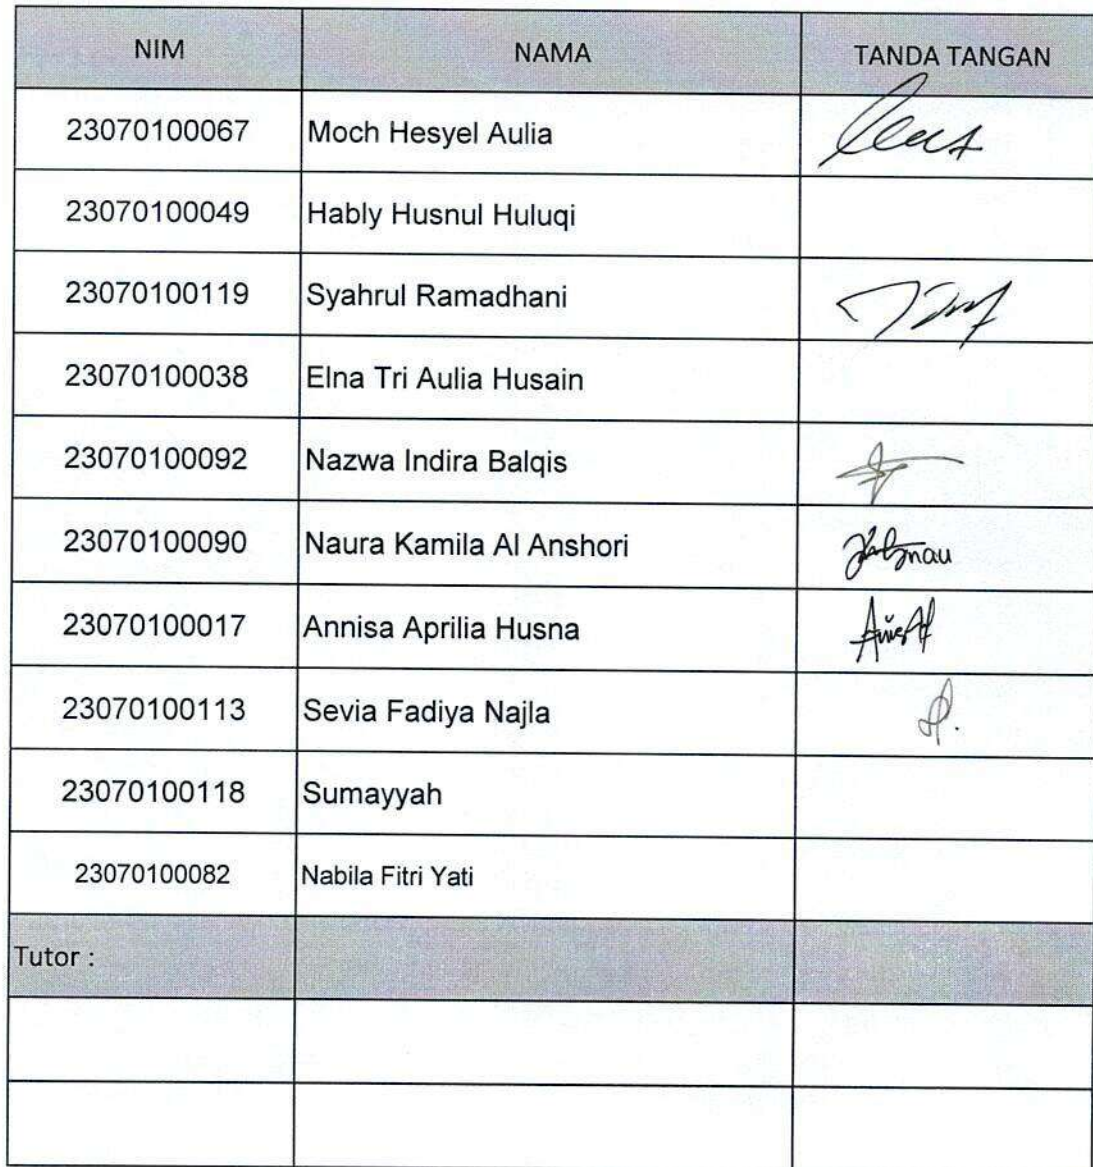 NIM NAMA TANDA TANGAN
23070100067 Moch Hesyel Aulia
23070100049 Hably Husnul Huluqi
23070100119 Syahrul Ramadhani
23070100038 Elna Tri Aulia Husain
23070100092 Nazwa Indira Balqis
23070100090 Naura Kamila Al Anshori
23070100017 Annisa Aprilia Husna
23070100113 Sevia Fadiya Najla
23070100118 Sumayyah
23070100082 Nabila Fitri Yati
Tutor :